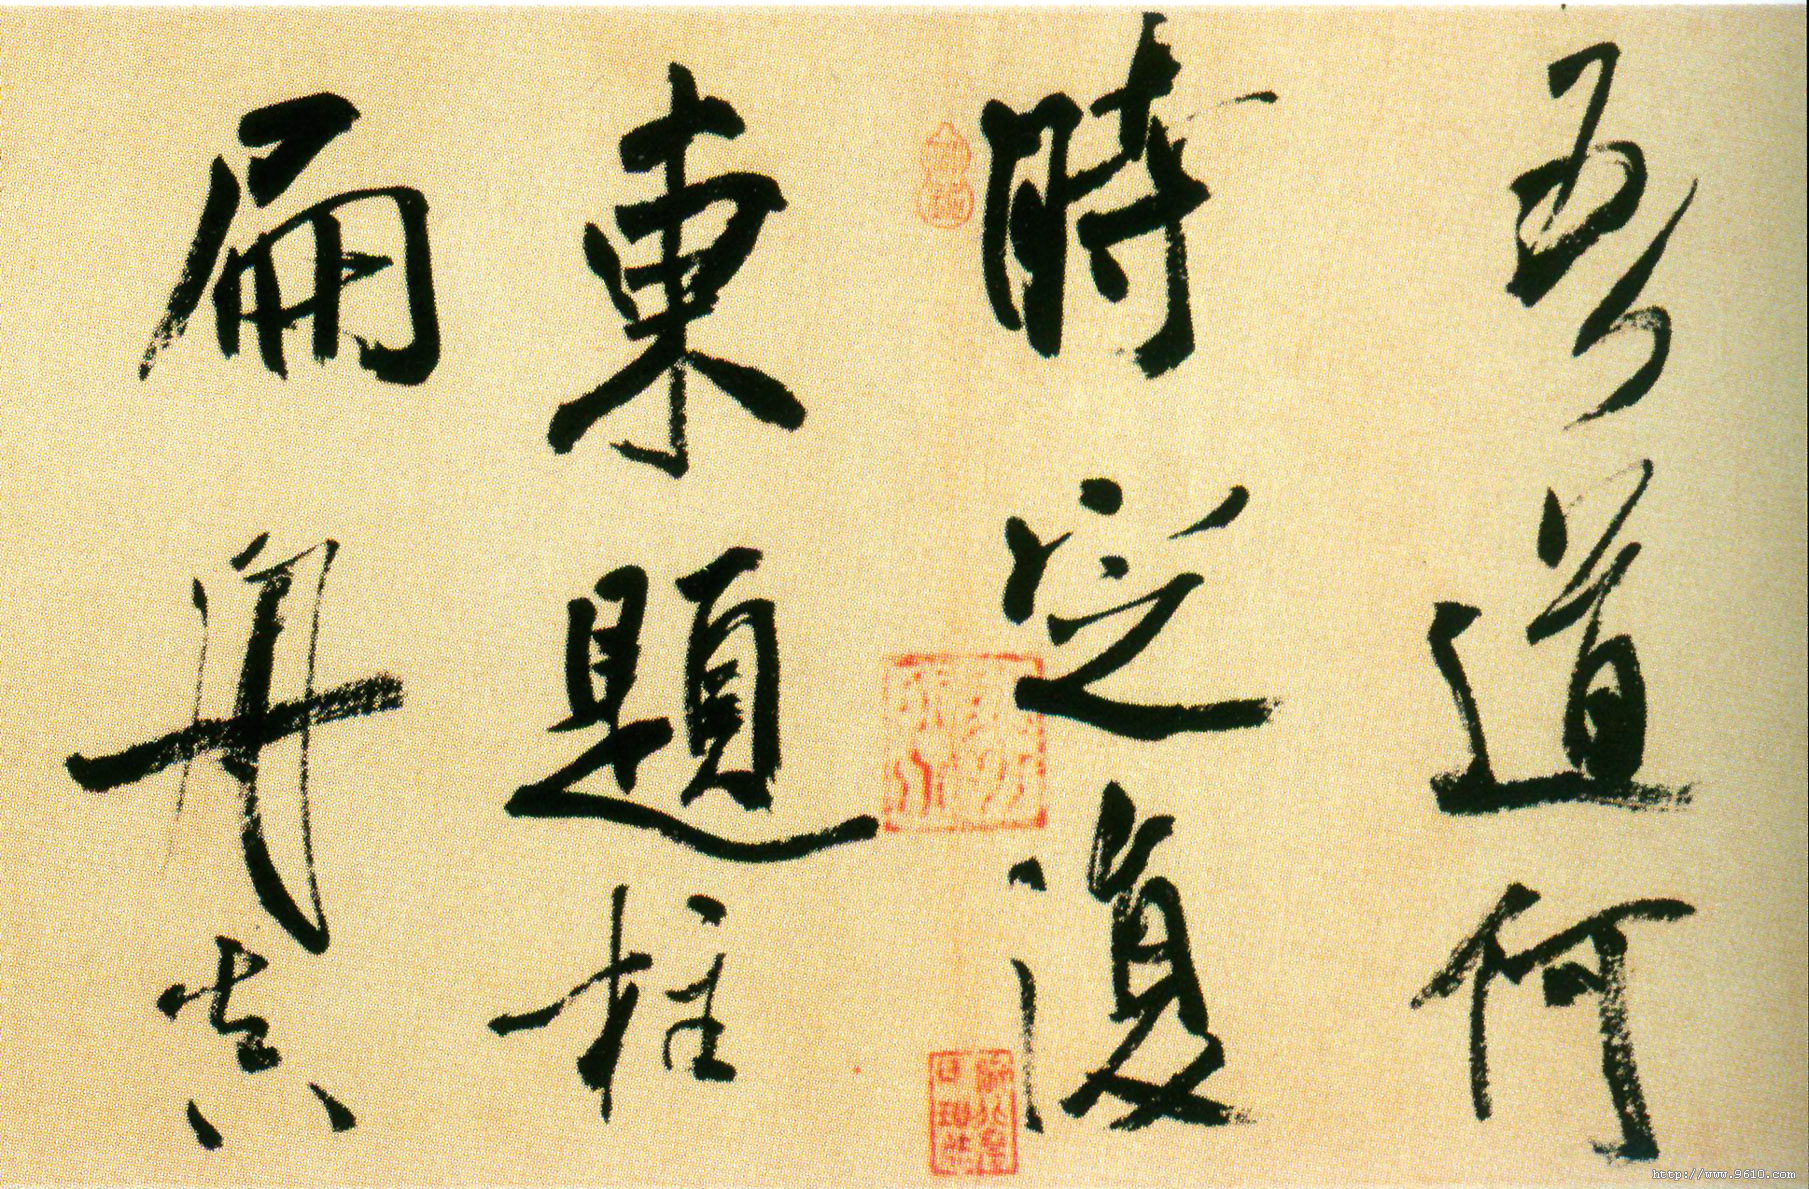 吾道何
時定復
東題柱
扁舟真
http://www.9610.com